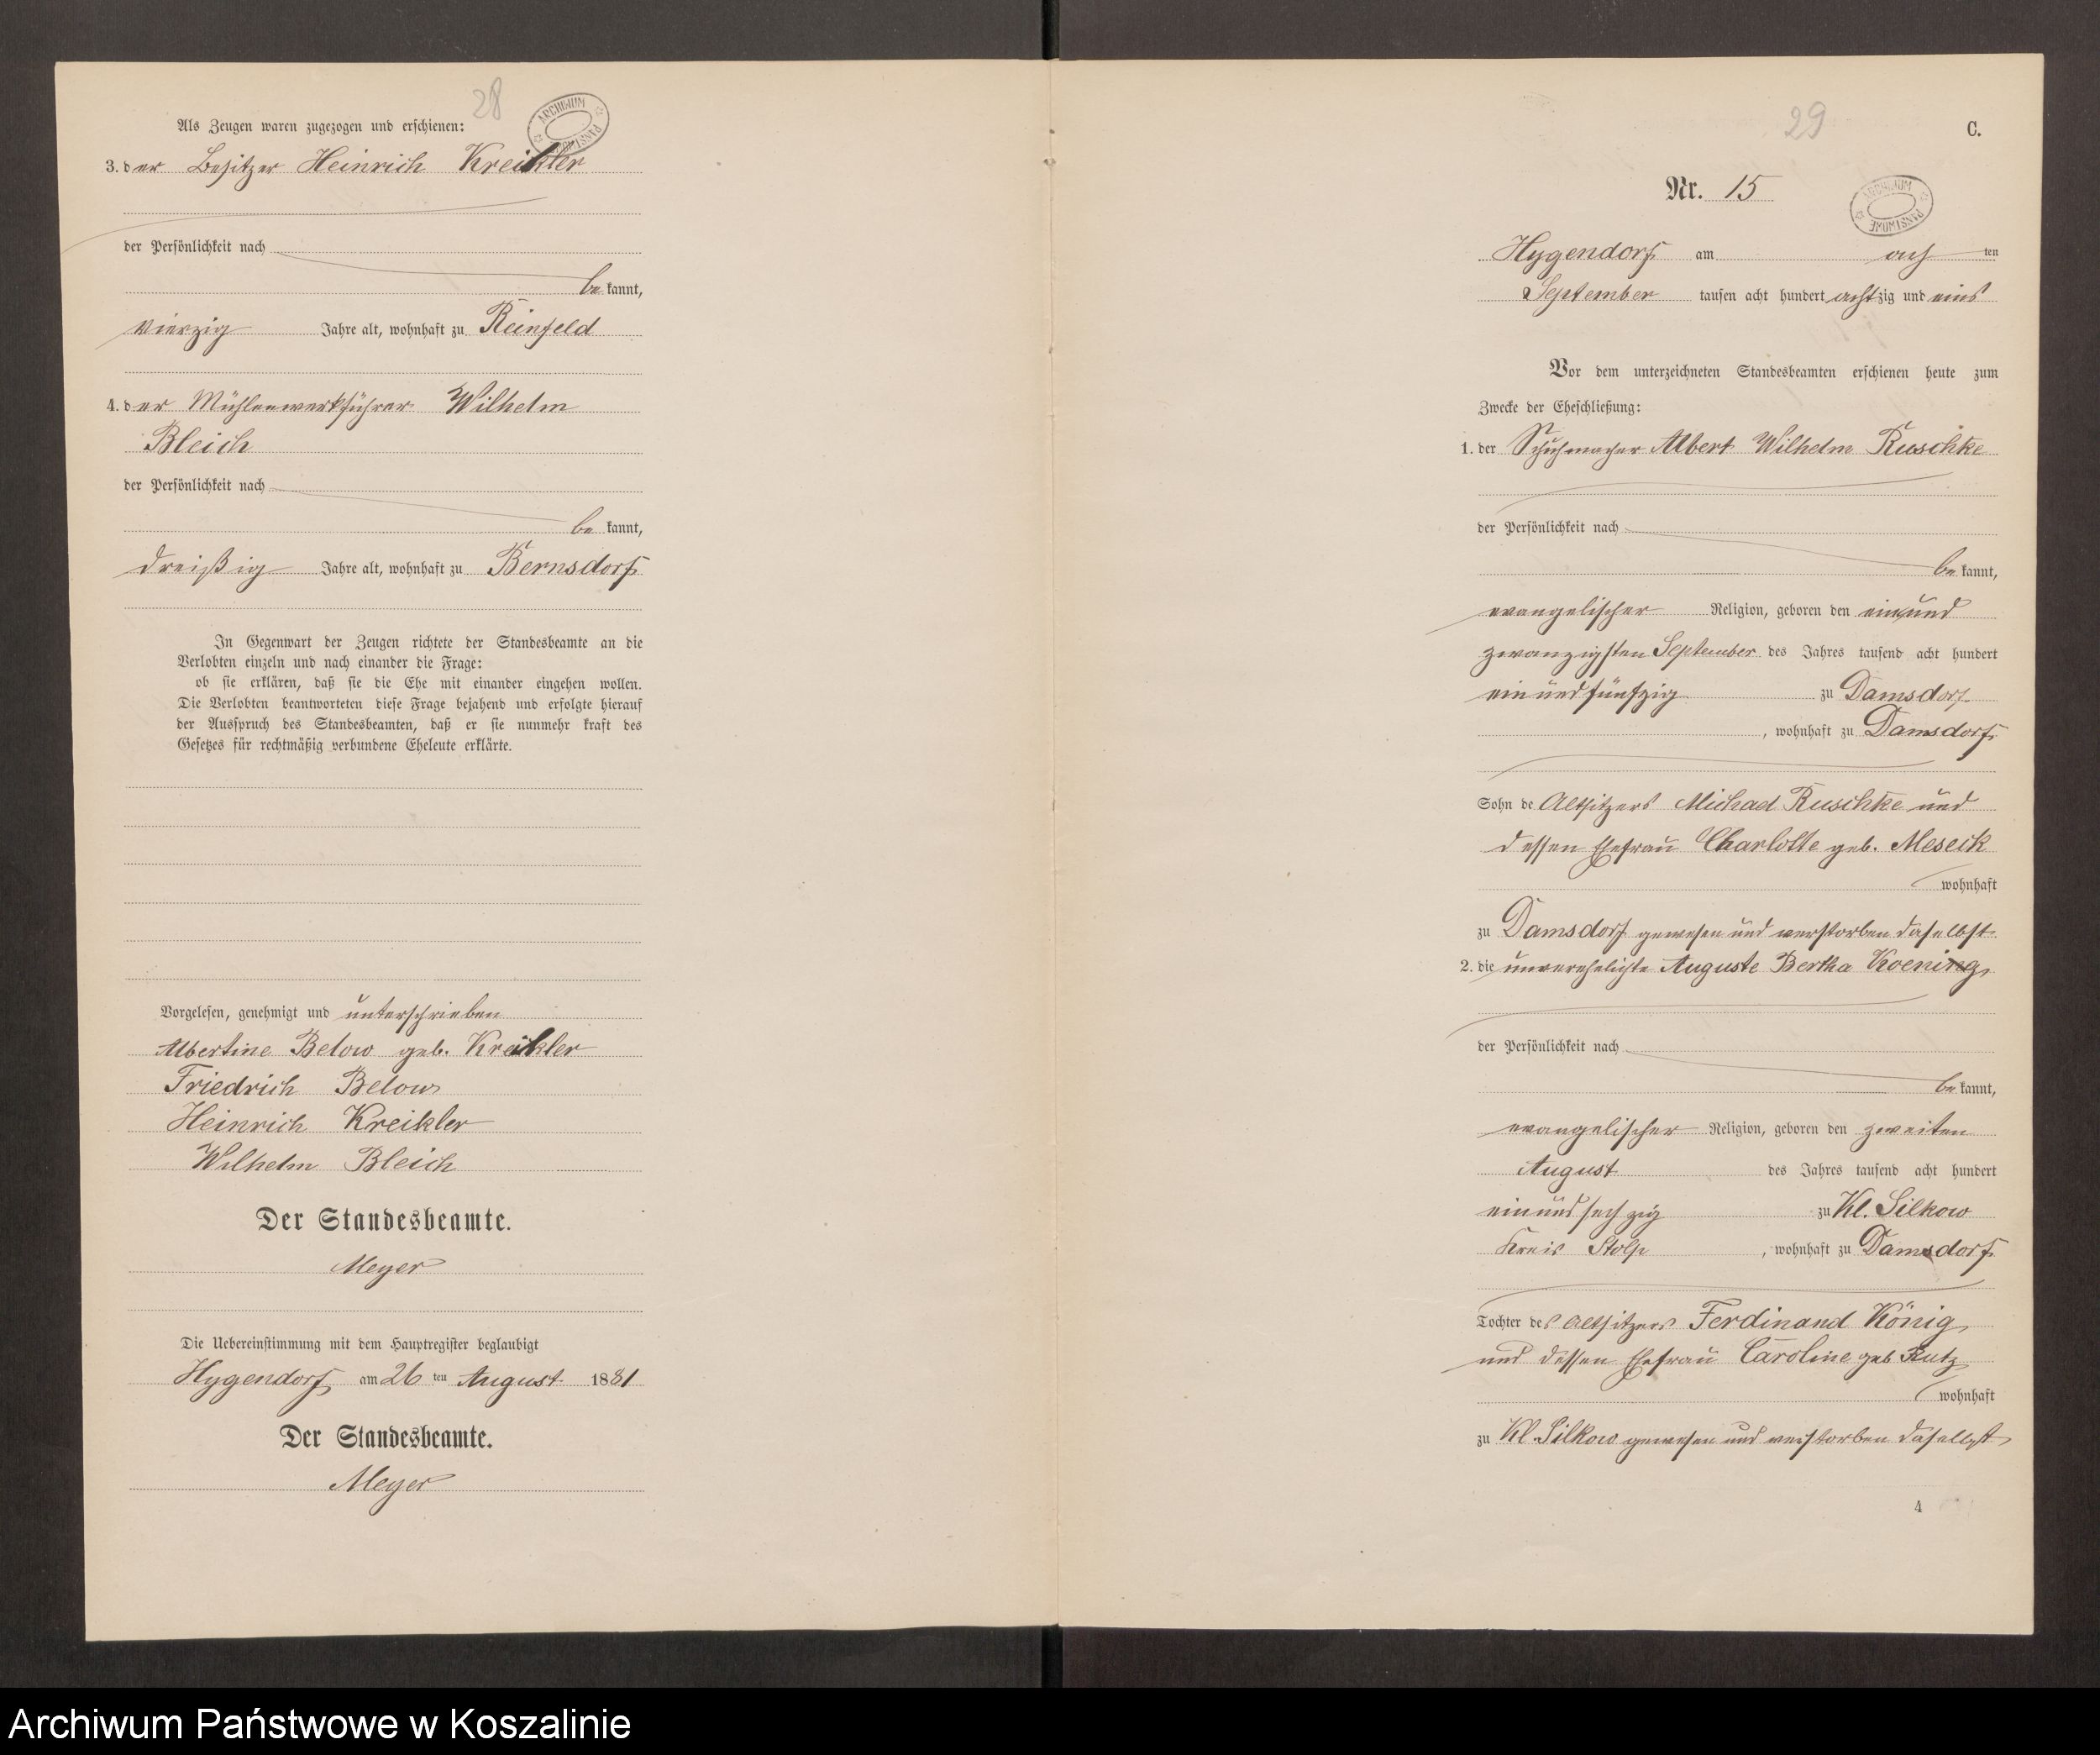 28
ARCHIWUM PAŃSTWOWE
Als Zeugen waren zugezogen und erschienen:
3. der Besitzer Heinrich Kreikler
der Persönlichkeit nach
be kannt,
vierzig Jahre alt, wohnhaft zu Reinfeld
4. der Mühlenwerkführer Wilhelm
Bleich
der Persönlichkeit nach
be kannt,
dreißig Jahre alt, wohnhaft zu Bernsdorf
In Gegenwart der Zeugen richtete der Standesbeamte an die
Verlobten einzeln und nach einander die Frage:
ob sie erklären, daß sie die Ehe mit einander eingehen wollen.
Die Verlobten beantworteten diese Frage bejahend und erfolgte hierauf
der Ausspruch des Standesbeamten, daß er sie nunmehr kraft des
Gesetzes für rechtmäßig verbundene Eheleute erklärte.
Vorgelesen, genehmigt und unterschrieben
Albertine Below geb. Kreikler
Friedrich Below
Heinrich Kreikler
Wilhelm Bleich
Der Standesbeamte.
Meyer
Die Uebereinstimmung mit dem Hauptregister beglaubigt
Hygendorf am 26 ten August 1881
Der Standesbeamte.
Meyer
29
C.
Nr. 15
ARCHIWUM PAŃSTWOWE
Hygendorf am ach ten
September tausen acht hundert achtzig und eins
Vor dem unterzeichneten Standesbeamten erschienen heute zum
Zwecke der Eheschließung:
1. der Schuhmacher Albert Wilhelm Ruschke
der Persönlichkeit nach
be kannt,
evangelischer Religion, geboren den einund
zwanzigsten September des Jahres tausend acht hundert
einundfünfzig zu Damsdorf
, wohnhaft zu Damsdorf
Sohn de Altsitzers Michael Ruschke und
dessen Ehefrau Charlotte geb. Meseck
wohnhaft
zu Damsdorf gewesen und verstorben daselbst
2. die unverehelichte Auguste Bertha Koenig
der Persönlichkeit nach
be kannt,
evangelischer Religion, geboren den zweiten
August des Jahres tausend acht hundert
einundsechzig zu Kl. Silkow
Kreis Stolp , wohnhaft zu Damsdorf
Tochter des Altsitzers Ferdinand König
und dessen Ehefrau Caroline geb Kutz
wohnhaft
zu Kl. Silkow gewesen und verstorben daselbst
4
Archiwum Państwowe w Koszalinie